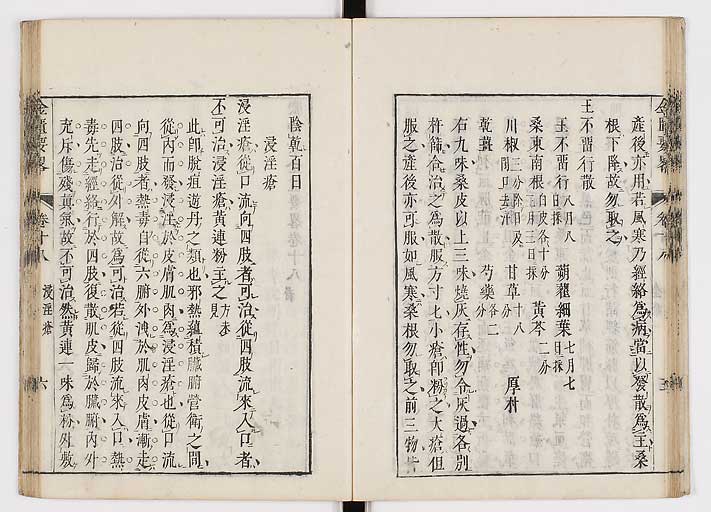 產後亦用若風寒乃經絡爲病當以發散爲主桑
根下降故勿取之
王不畱行散
王不畱行 八月八日採 蒴藋細葉 七月七日採
桑東南根 白皮各十分三月三日採 黃芩 二分
川椒 三分除目及閉口去汗 甘草 十八分 厚朴
乾薑 芍藥 各二分
右九味桑皮以上三味燒灰存性勿令灰過各別
杵篩合治之爲散服方寸匕小瘡卽粉之大瘡但
服之產後亦可服如風寒桑根勿取之前三物
陰乾百日
浸淫瘡
浸淫瘡從口流向四肢者可治從四肢流來入口者
不可治浸淫瘡黃連粉主之 方未見
此卽脫疽遊丹之類也邪熱蘊積臟腑營衛之間
從內而發浸淫於皮膚肌肉爲浸淫瘡也從口流
向四肢者熱毒自從六腑外洩於肌肉皮膚漸走
四肢治從外解故爲可治若從四肢流來入口熱
毒先走經絡行於四肢復散肌皮歸於臟腑內外
充斥傷殘眞氣故不可治然黃連一味爲粉外敷
金匱要略 卷十八 浸淫瘡 六